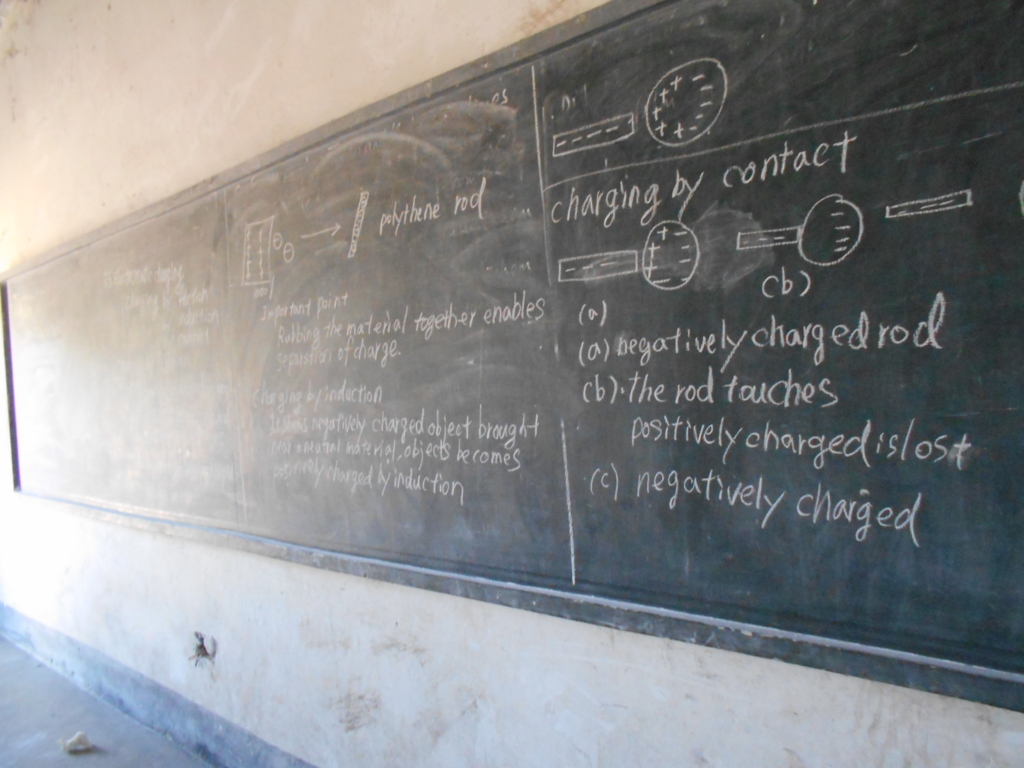 polythene rod
Important point
Rubbing the material together enables
separation of charge.
charging by induction
negatively charged object brought
near a neutral material, objects becomes
positively charged by induction
charging by contact
(b)
(a)
(a) negatively charged rod
(b). the rod touches
positively charged is lost
(c) negatively charged